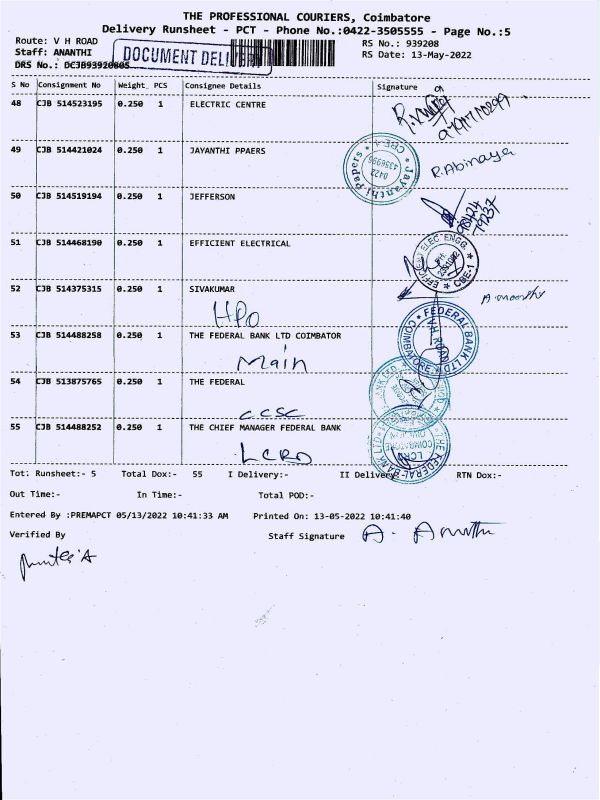 THE PROFESSIONAL COURIERS, Coimbatore
Delivery Runsheet - PCT - Phone No.:0422-3505555 - Page No.:5
Route: V H ROAD RS No.: 939208
Staff: ANANTHI DOCUMENT DELIVERY RS Date: 13-May-2022
DRS No.: DCJB93920805
S No Consignment No Weight PCS Consignee Details Signature
48 CJB 514523195 0.250 1 ELECTRIC CENTRE
49 CJB 514421024 0.250 1 JAYANTHI PPAERS Jayanthi Papers CBE-1 0422 4356996 R.Abinaya
50 CJB 514519194 0.250 1 JEFFERSON 98424 79237
51 CJB 514468190 0.250 1 EFFICIENT ELECTRICAL EFFICIENT ELEC ENGG. CBE-1
52 CJB 514375315 0.250 1 SIVAKUMAR A. moorthy
HPO
53 CJB 514488258 0.250 1 THE FEDERAL BANK LTD COIMBATOR FEDERAL BANK LTD VH ROAD COIMBATORE
Main
54 CJB 513875765 0.250 1 THE FEDERAL
CCSC
55 CJB 514488252 0.250 1 THE CHIEF MANAGER FEDERAL BANK THE FEDERAL BANK LTD LCRD COIMBATORE DIVISION
LCRD
Tot: Runsheet:- 5 Total Dox:- 55 I Delivery:- II Delivery:- RTN Dox:-
Out Time:- In Time:- Total POD:-
Entered By :PREMAPCT 05/13/2022 10:41:33 AM Printed On: 13-05-2022 10:41:40
Verified By Staff Signature